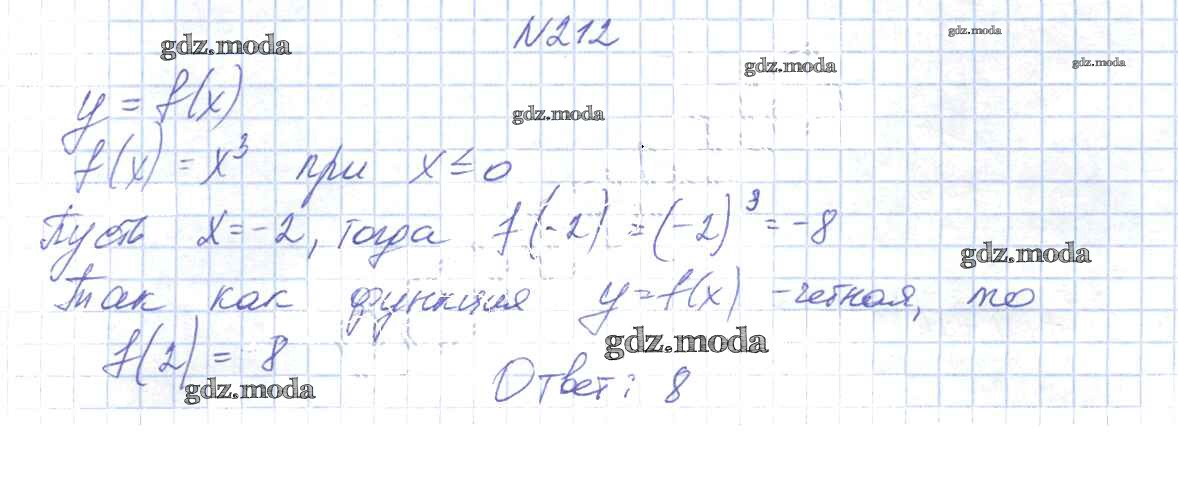 №212
gdz.moda
gdz.moda
gdz.moda
gdz.moda
y = f(x)
gdz.moda
f(x) = x³ при x ≤ 0
Пусть x = -2, тогда f(-2) = (-2)³ = -8
gdz.moda
Так как функция y = f(x) - четная, то
gdz.moda
f(2) = 8
gdz.moda
Ответ: 8